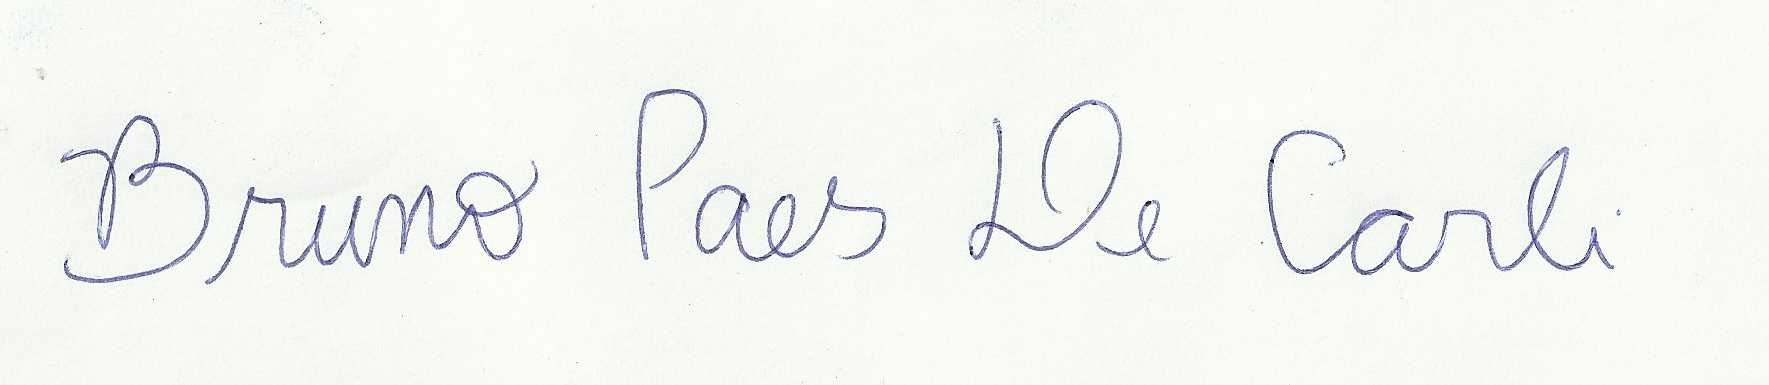 Bruno Paes De Carli